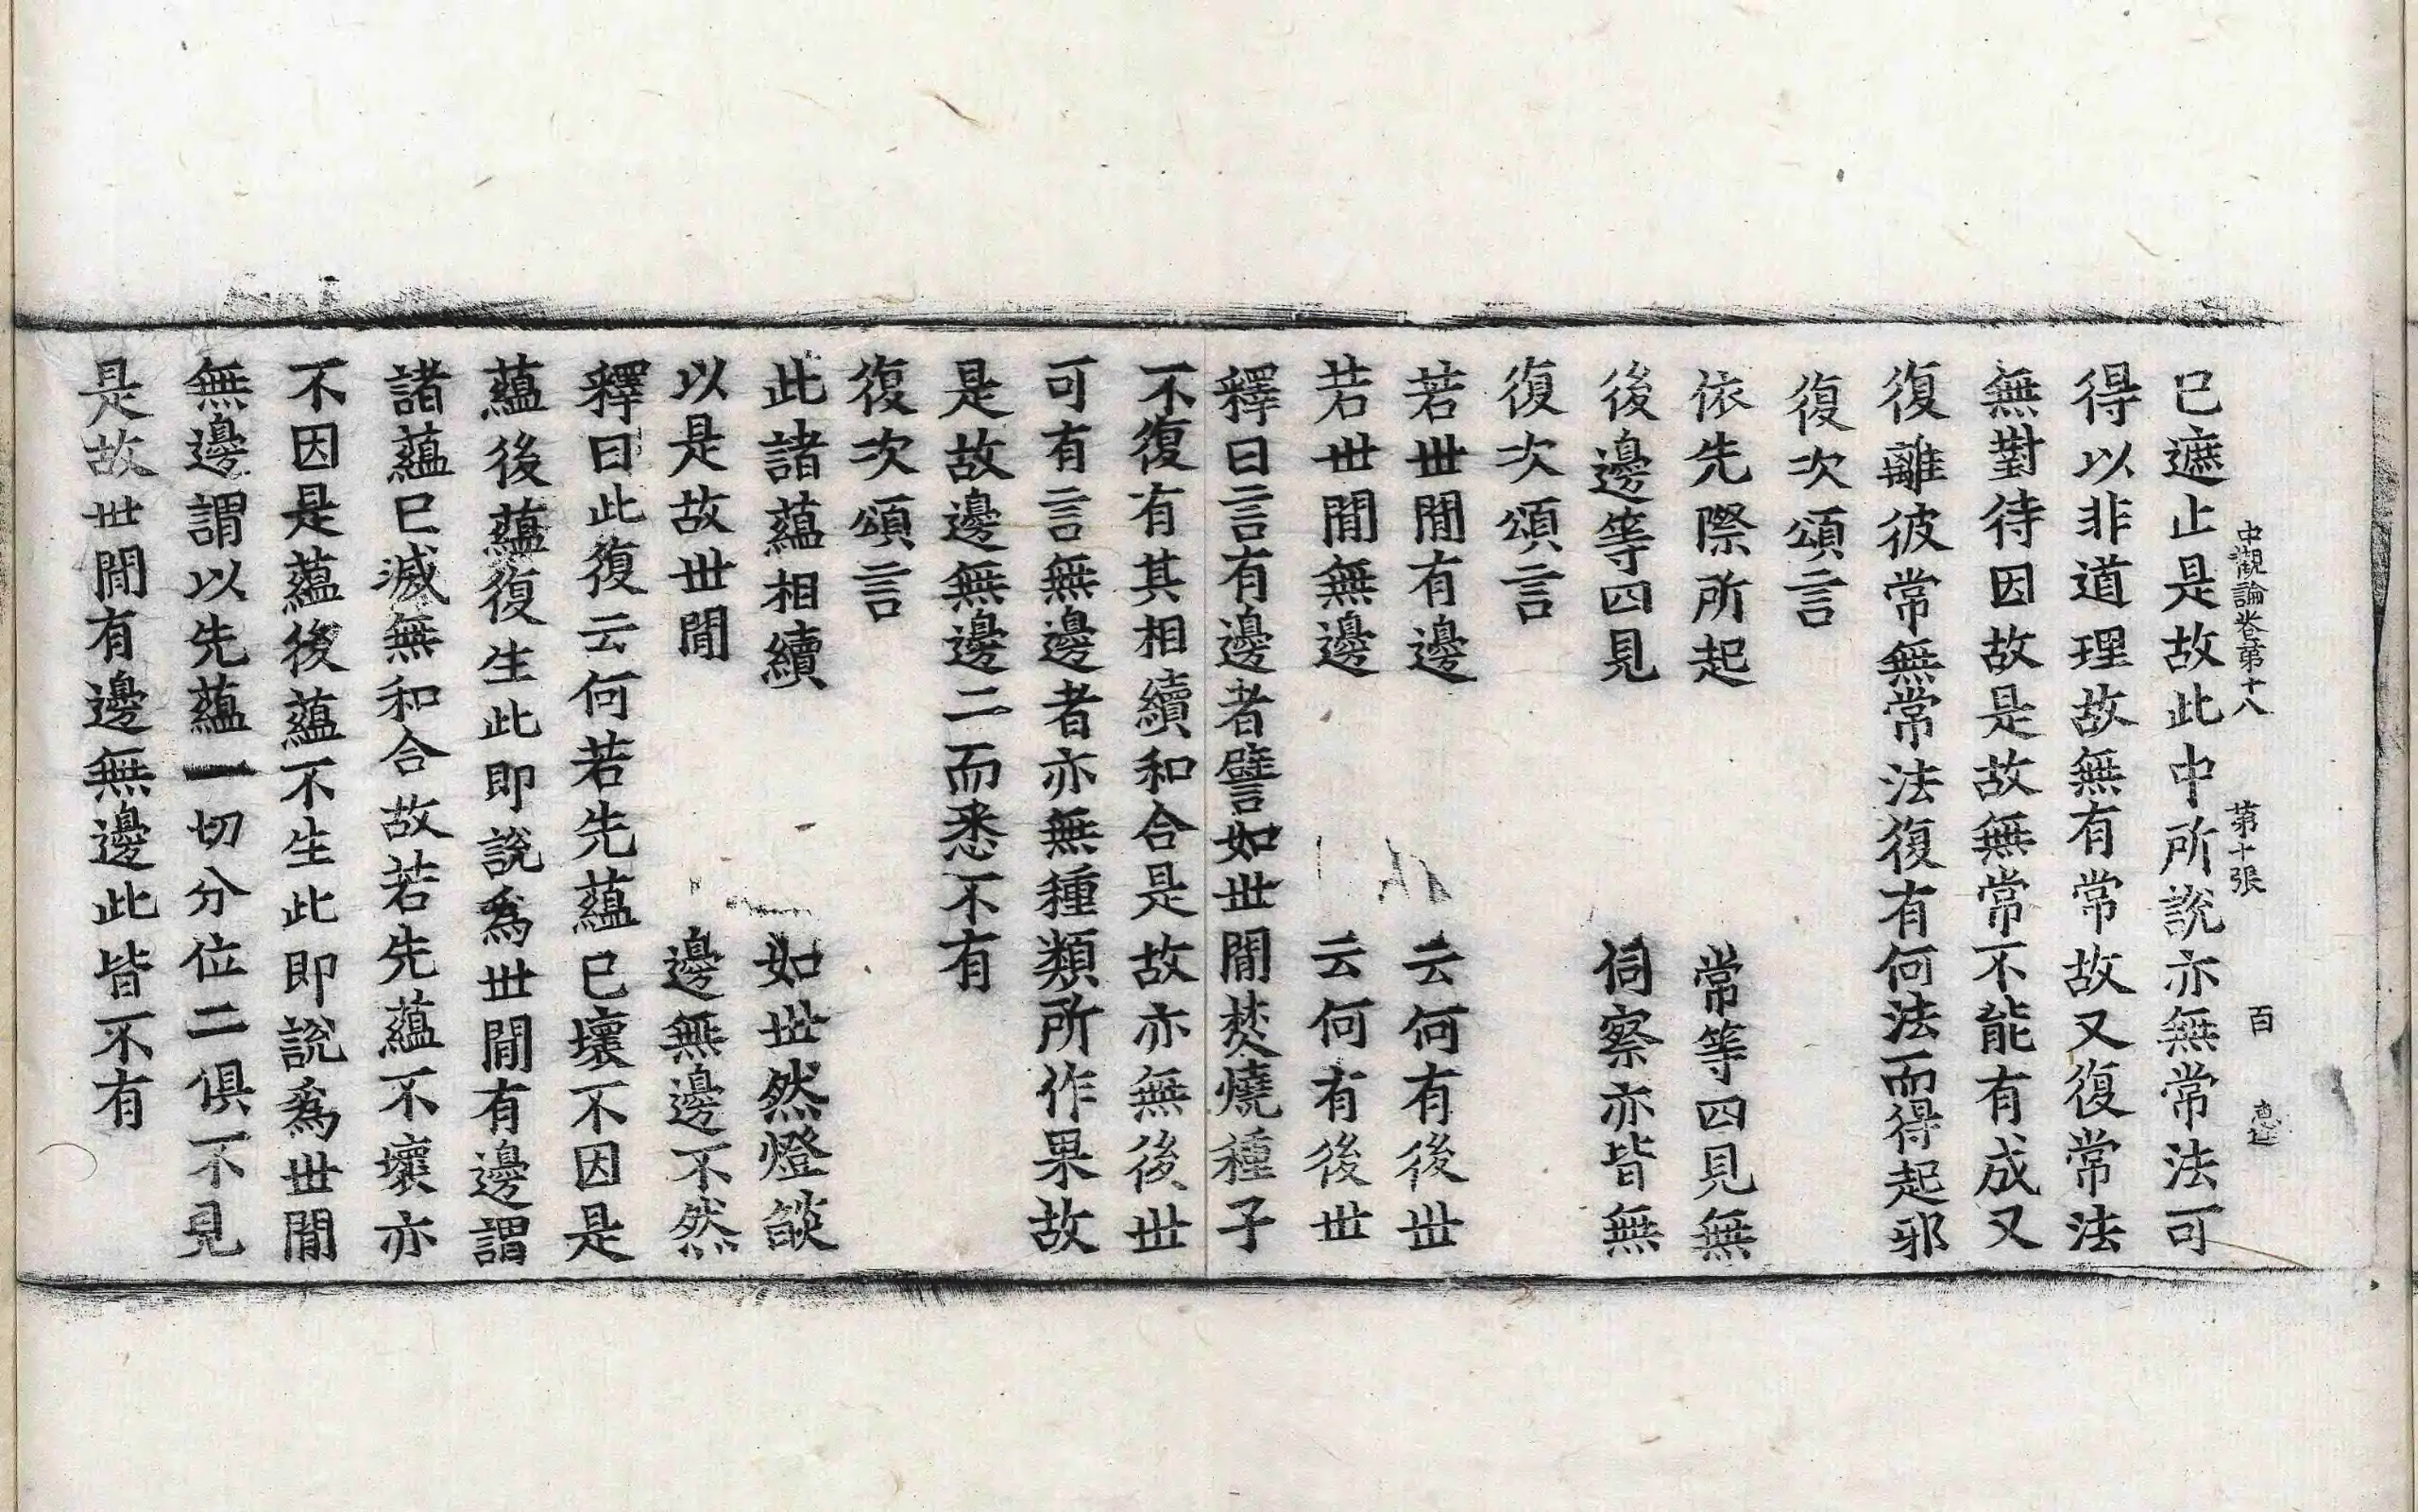 中觀論卷第十八 第十張 百
已遮止是故此中所說亦無常法可
得以非道理故無有常故又復常法
無對待因故是故無常不能有成又
復離彼常無常法復有何法而得起邪
復次頌言
依先際所起 常等四見無
後邊等四見 伺察亦皆無
復次頌言
若世閒有邊 云何有後世
若世閒無邊 云何有後世
釋曰言有邊者譬如世閒焚燒種子
不復有其相續和合是故亦無後世
可有言無邊者亦無種類所作果故
是故邊無邊二而悉不有
復次頌言
此諸蘊相續 如世然燈燄
以是故世閒 邊無邊不然
釋曰此復云何若先蘊已壞不因是
蘊後蘊復生此即說為世閒有邊謂
諸蘊已滅無和合故若先蘊不壞亦
不因是蘊後蘊不生此即說為世閒
無邊謂以先蘊一切分位二俱不見
是故世閒有邊無邊此皆不有